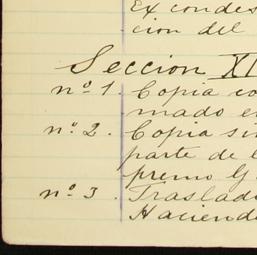 Ex condes
cion del
Seccion XI
nº 1 Copia co
mado e
nº 2. Copia sin
parte de l
premo G
nº 3. Traslad
Haciend